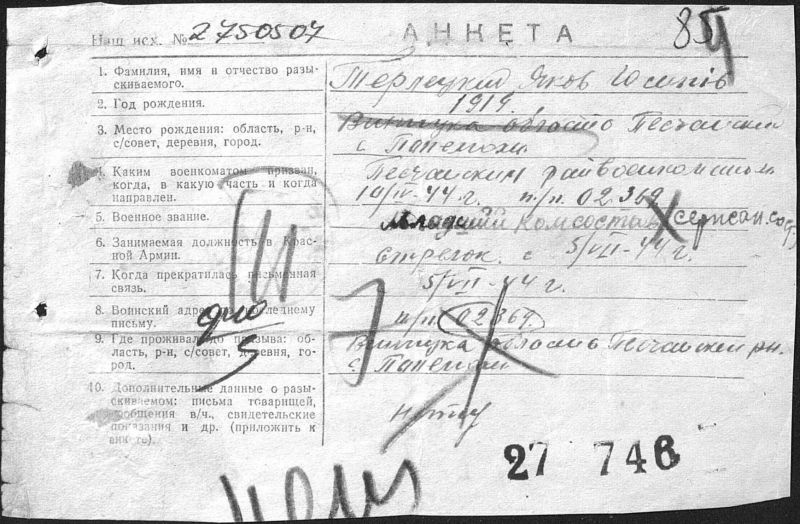 Наш исх. № 2750507 АНКЕТА 85
1. Фамилия, имя и отчество разы-
скиваемого. Терлецкий Яков Юсипів
2. Год рождения. 1919.
3. Место рождения: область, р-н,
с/совет, деревня, город. область Песчанский
с
4. Каким военкоматом призван,
когда, в какую часть и когда
направлен. Песчанским райвоенкоматом
10/IV-44 г. п/п. 02369
5. Военное звание. Младший Комсостав
6. Занимаемая должность в Крас-
ной Армии. стрелок. с 5/VII-44 г.
7. Когда прекратилась письменная
связь. 5/VII-44 г.
8. Воинский адрес по последнему
письму. п/п. 02369.
9. Где проживал до призыва: об-
ласть, р-н, с/совет, деревня, го-
род. область Песчанский рн.
с.
10. Дополнительные данные о разы-
скиваемом: письма товарищей,
сообщения в/ч., свидетельские
показания и др. (приложить к
анкете).
27 746